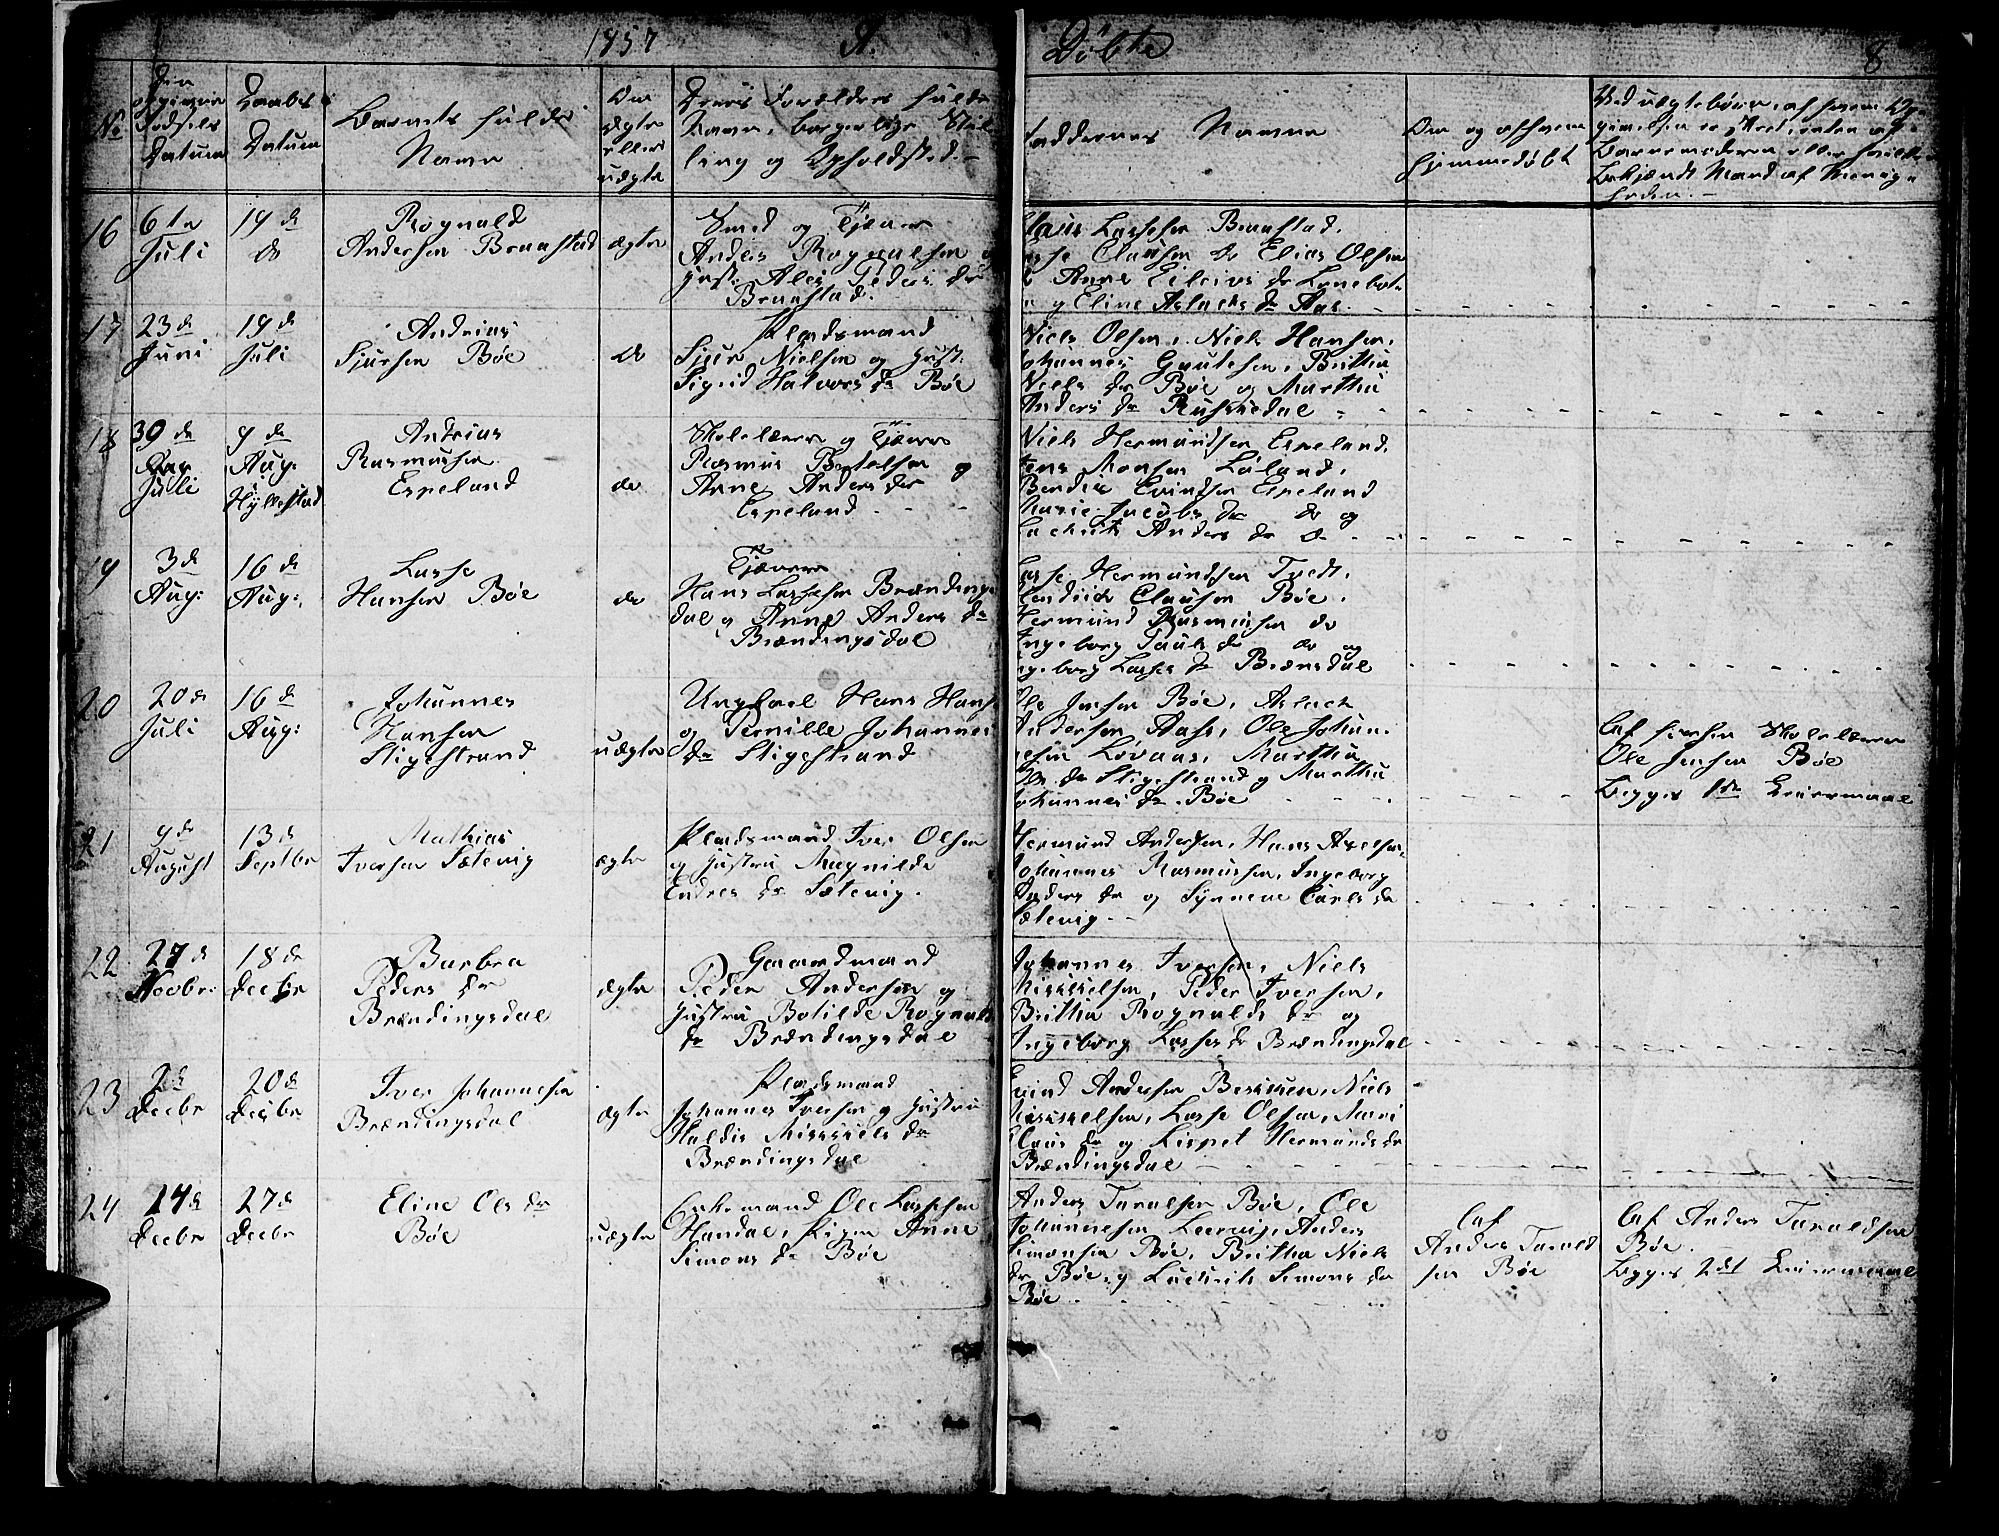 1857 A. Døbte 8
No
Den
opgivne
Fødsels
Datum
Daabs
Datum
Barnets fulde
Navn
Om
ægte
eller
uægte
Deres Forældres fulde
Navn, borgerlige Stil-
ling og Opholdsted.
Faddernes Navne
Om og af hvem
hjemmedøbt
Ved uægte børn, af hvem Op-
givelsen er skeet, enten af
Barnemoderen eller hvilken
bekjendt Mand af Menig-
heden.
16
6te
Juli
19 de
do
Rognald
Andersen Braastad
ægte
Smed og
Anders Rognalsen
Peders dr
Braastad.
Claus Lassesen Braastad,
Lasse Clausen do Elias Olsen
Anne
og Eline Aslachs dr Aas.
17
23 de
Juni
19 de
Juli
Andreas
Sjursen Bøe
do
Pladsmand
Sjur Nielsen og Hust:
Sigrid Halvors dr Bøe
Niels Olsen, Niels Hansen,
Johannes Gautesen, Brithe
Niels dr Bøe og Martha
Anders dr Russedal
18
30 de
Juli
9 de
Aug:
Hyllestad
Andreas
Rasmussen
Espeland
do
Skolelærer og
Rasmus Bertelsen og
Anne Anders dr
Espeland
Niels Hermundsen Espeland,
Jens Monsen
Evindsen Espeland
Marie Jacobs dr do og
Anders dr do
19
3 de
Aug:
16 de
Aug:
Lasse
Hansen Bøe
do
Hans Lassesen Brændings-
dal og Anne Anders dr
Brændingsdal
Lasse Hermundsen Tvedt,
Hendrick Clausen Bøe,
Hermund Rasmussen do
Ingeborg Pauls dr do og
Ingeborg Lasses dr Brænsdal
20
20 de
Juli
16 de
Aug:
Johannes
Hansen
Stigestrand
uægte
Ungkarl Hans Hans
og Pernille Johannes
dr Stigestrand
Ole Jensen Bøe, Aslach
Andersen Aase, Ole Johan-
nesen Lovaas, Martha
dr Stigestrand og Martha
Johannes dr Bøe
Af Skolelærer
Ole Jensen Bøe
Begges 1ste Leiermaal
21
9 de
August
13 de
Septbr
Mathias
Iversen Sætevig
ægte
Pladsmand Iver Olsen
og Hustru Magnilde
Endres dr Sætevig.
Hermund Andersen, Hans Axelsen,
Johannes Rasmussen, Ingeborg
Anders dr og Synneve Carls dr
Sætevig
22
27 de
Novbr:
18 de
Decbr
Barbra
Peders dr
Brændingsdal
ægte
Gaardmand
Peder Andersen og
Hustru Botilde Rognalds
dr Brændingsdal
Johannes Iversen, Niels
Mikkelsen, Peder Iversen,
Britha Rognalds dr og
Ingeborg Lasses dr Brændingsdal
23
2 de
Decbr
20 de
Decbr
Iver Johannesen
Brændingsdal
ægte
Pladsmand
Johannes Iversen og Hustru
Haldis Mikkels dr
Brændingsdal
Evind Andersen Niels
Mikkelsen, Lasse Olsen, Mari
Claus dr og Lispet Hermunds dr
Brændingsdal
24
14 de
Decbr
27 de
Decbr
Eline Ols dr
Bøe
uægte
Enkemand Ole Lassesen
Handal, Pigen Anne
Simons dr Bøe
Anders Taralsen Bøe, Ole
Johannesen Leervig, Anders
Simonsen Bøe, Britha Niels
dr Bøe og Simons dr
Bøe
Af
Anders Tarald
sen Bøe
Af Anders Taraldsen
Bøe.
Begges 2det Leiermaal